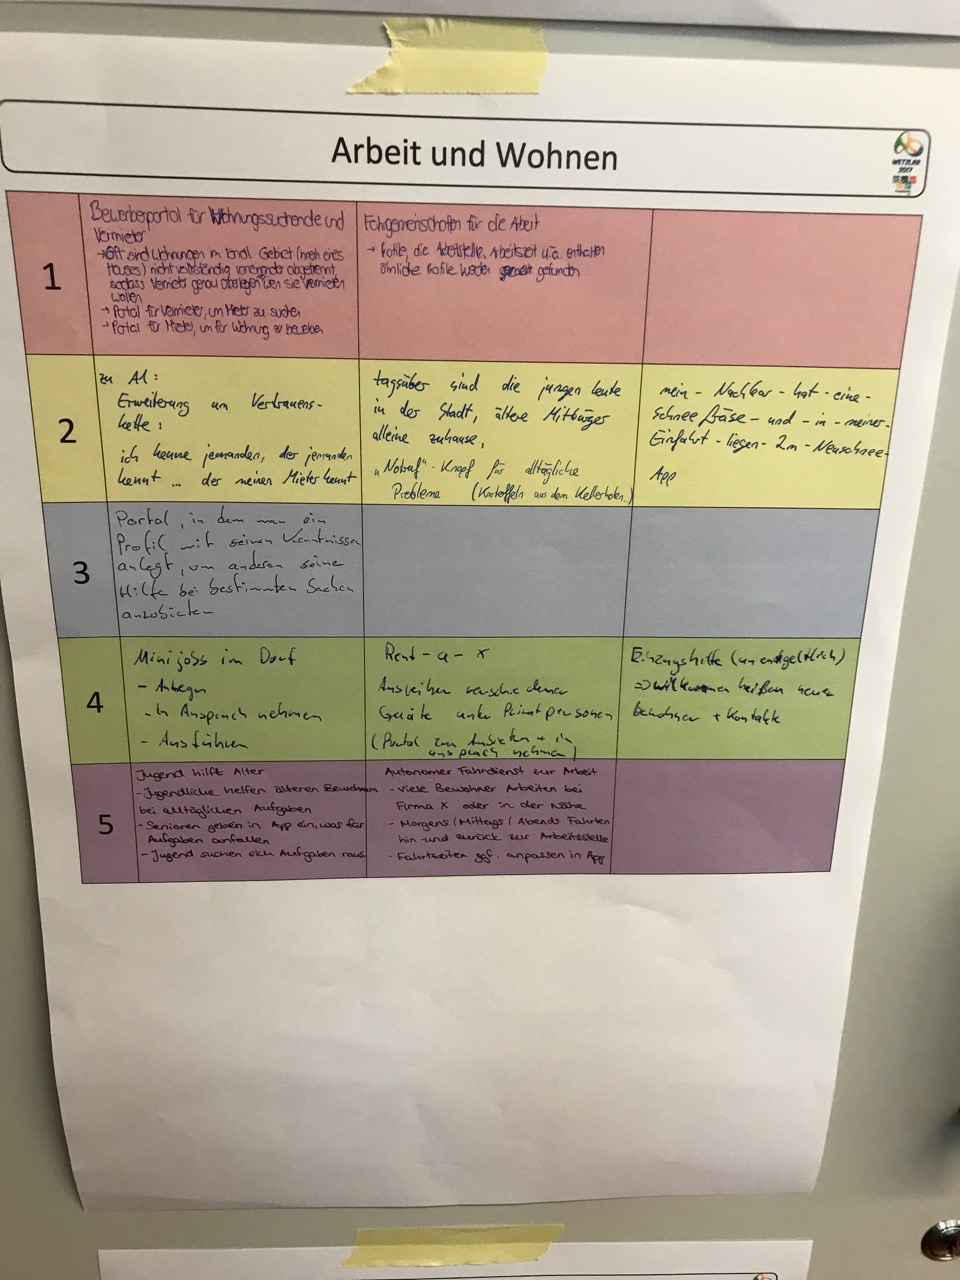 Arbeit und Wohnen
WETZLAR
2017
1
Bewerberportal für Wohnungssuchende und
Vermieter
→ Oft sind Wohnungen im ländl. Gebiet
Hauses) nicht vollständig abgetrennt,
sodass Vermieter genau überlegen wen sie vermieten
wollen
→ Portal für Vermieter, um Mieter zu suchen
→ Portal für Mieter, um für Wohnung zu bewerben
Fahrgemeinschaften für die Arbeit
→ Profile, die Arbeitsstelle, Arbeitszeit u.a. enthalten
ähnliche Profile werden gefunden
2
zu A1:
Erweiterung um Vertrauens-
kette:
ich kenne jemanden, der jemanden
kennt ... der meinen Mieter kennt
tagsüber sind die jungen Leute
in der Stadt, ältere Mitbürger
alleine zuhause,
„Notruf"-Knopf für alltägliche
Probleme (Kartoffeln aus dem Keller holen)
mein-Nachbar-hat-eine-
Schneefräse-und-in-meiner-
Einfahrt-liegen-2m-Neuschnee-
App
3
Portal, in dem man ein
Profil mit seinen Kenntnissen
anlegt, um anderen seine
Hilfe bei bestimmten Sachen
anzubieten
4
Minijobs im Dorf
- Anlegen
- In Anspruch nehmen
- Ausführen
Rent-a-x
Ausleihen verschiedener
Geräte unter Privatpersonen
(Portal zum Anbieten + in
anspruch nehmen)
Einzugshilfe (unentgeltlich)
⇒ willkommen heißen neuer
bewohner + Kontakte
5
Jugend hilft Alter
- Jugendliche helfen älteren Bewohnern
bei alltäglichen Aufgaben
- Senioren geben in App ein, was für
Aufgaben anfallen
- Jugend suchen sich Aufgaben raus
Autonomer Fahrdienst zur Arbeit
- Viele Bewohner Arbeiten bei
Firma X oder in der Nähe
- Morgens/Mittags/Abends Fahrten
hin- und zurück zur Arbeitsstelle
- Fahrtzeiten ggf. anpassen in App